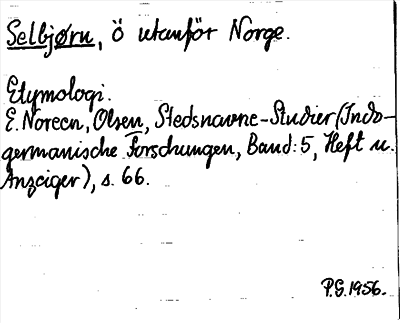 Selbjørn, ö utanför Norge.
Etymologi.
E. Noreen, Olsen, Stedsnavne-Studier (Indo-
germanische Forschungen, Band: 5, Heft u.
Anzeiger), s. 66.
P.G. 1956.